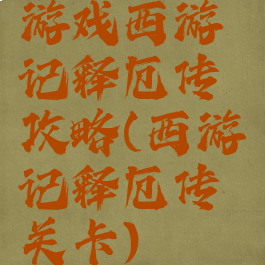 游戏西游
记释厄传
攻略(西游
记释厄传
关卡)